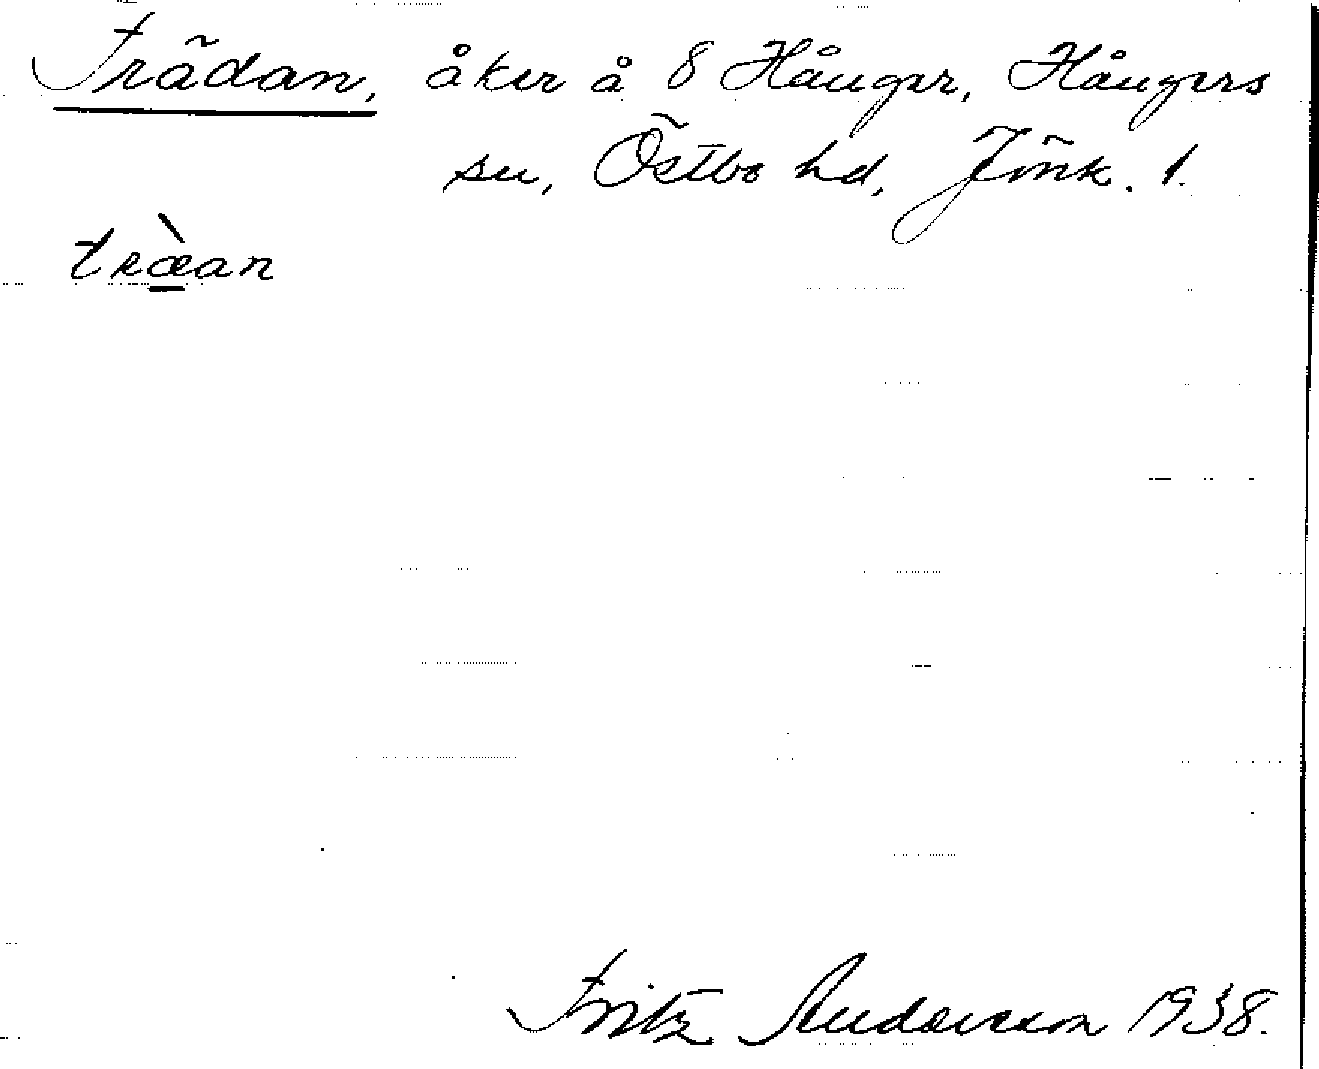 Trädan, åker å 8 Hånger, Hångers
sn, Östbo hd, Jönk. l.
træ̀an
Fritz Andersson 1938.